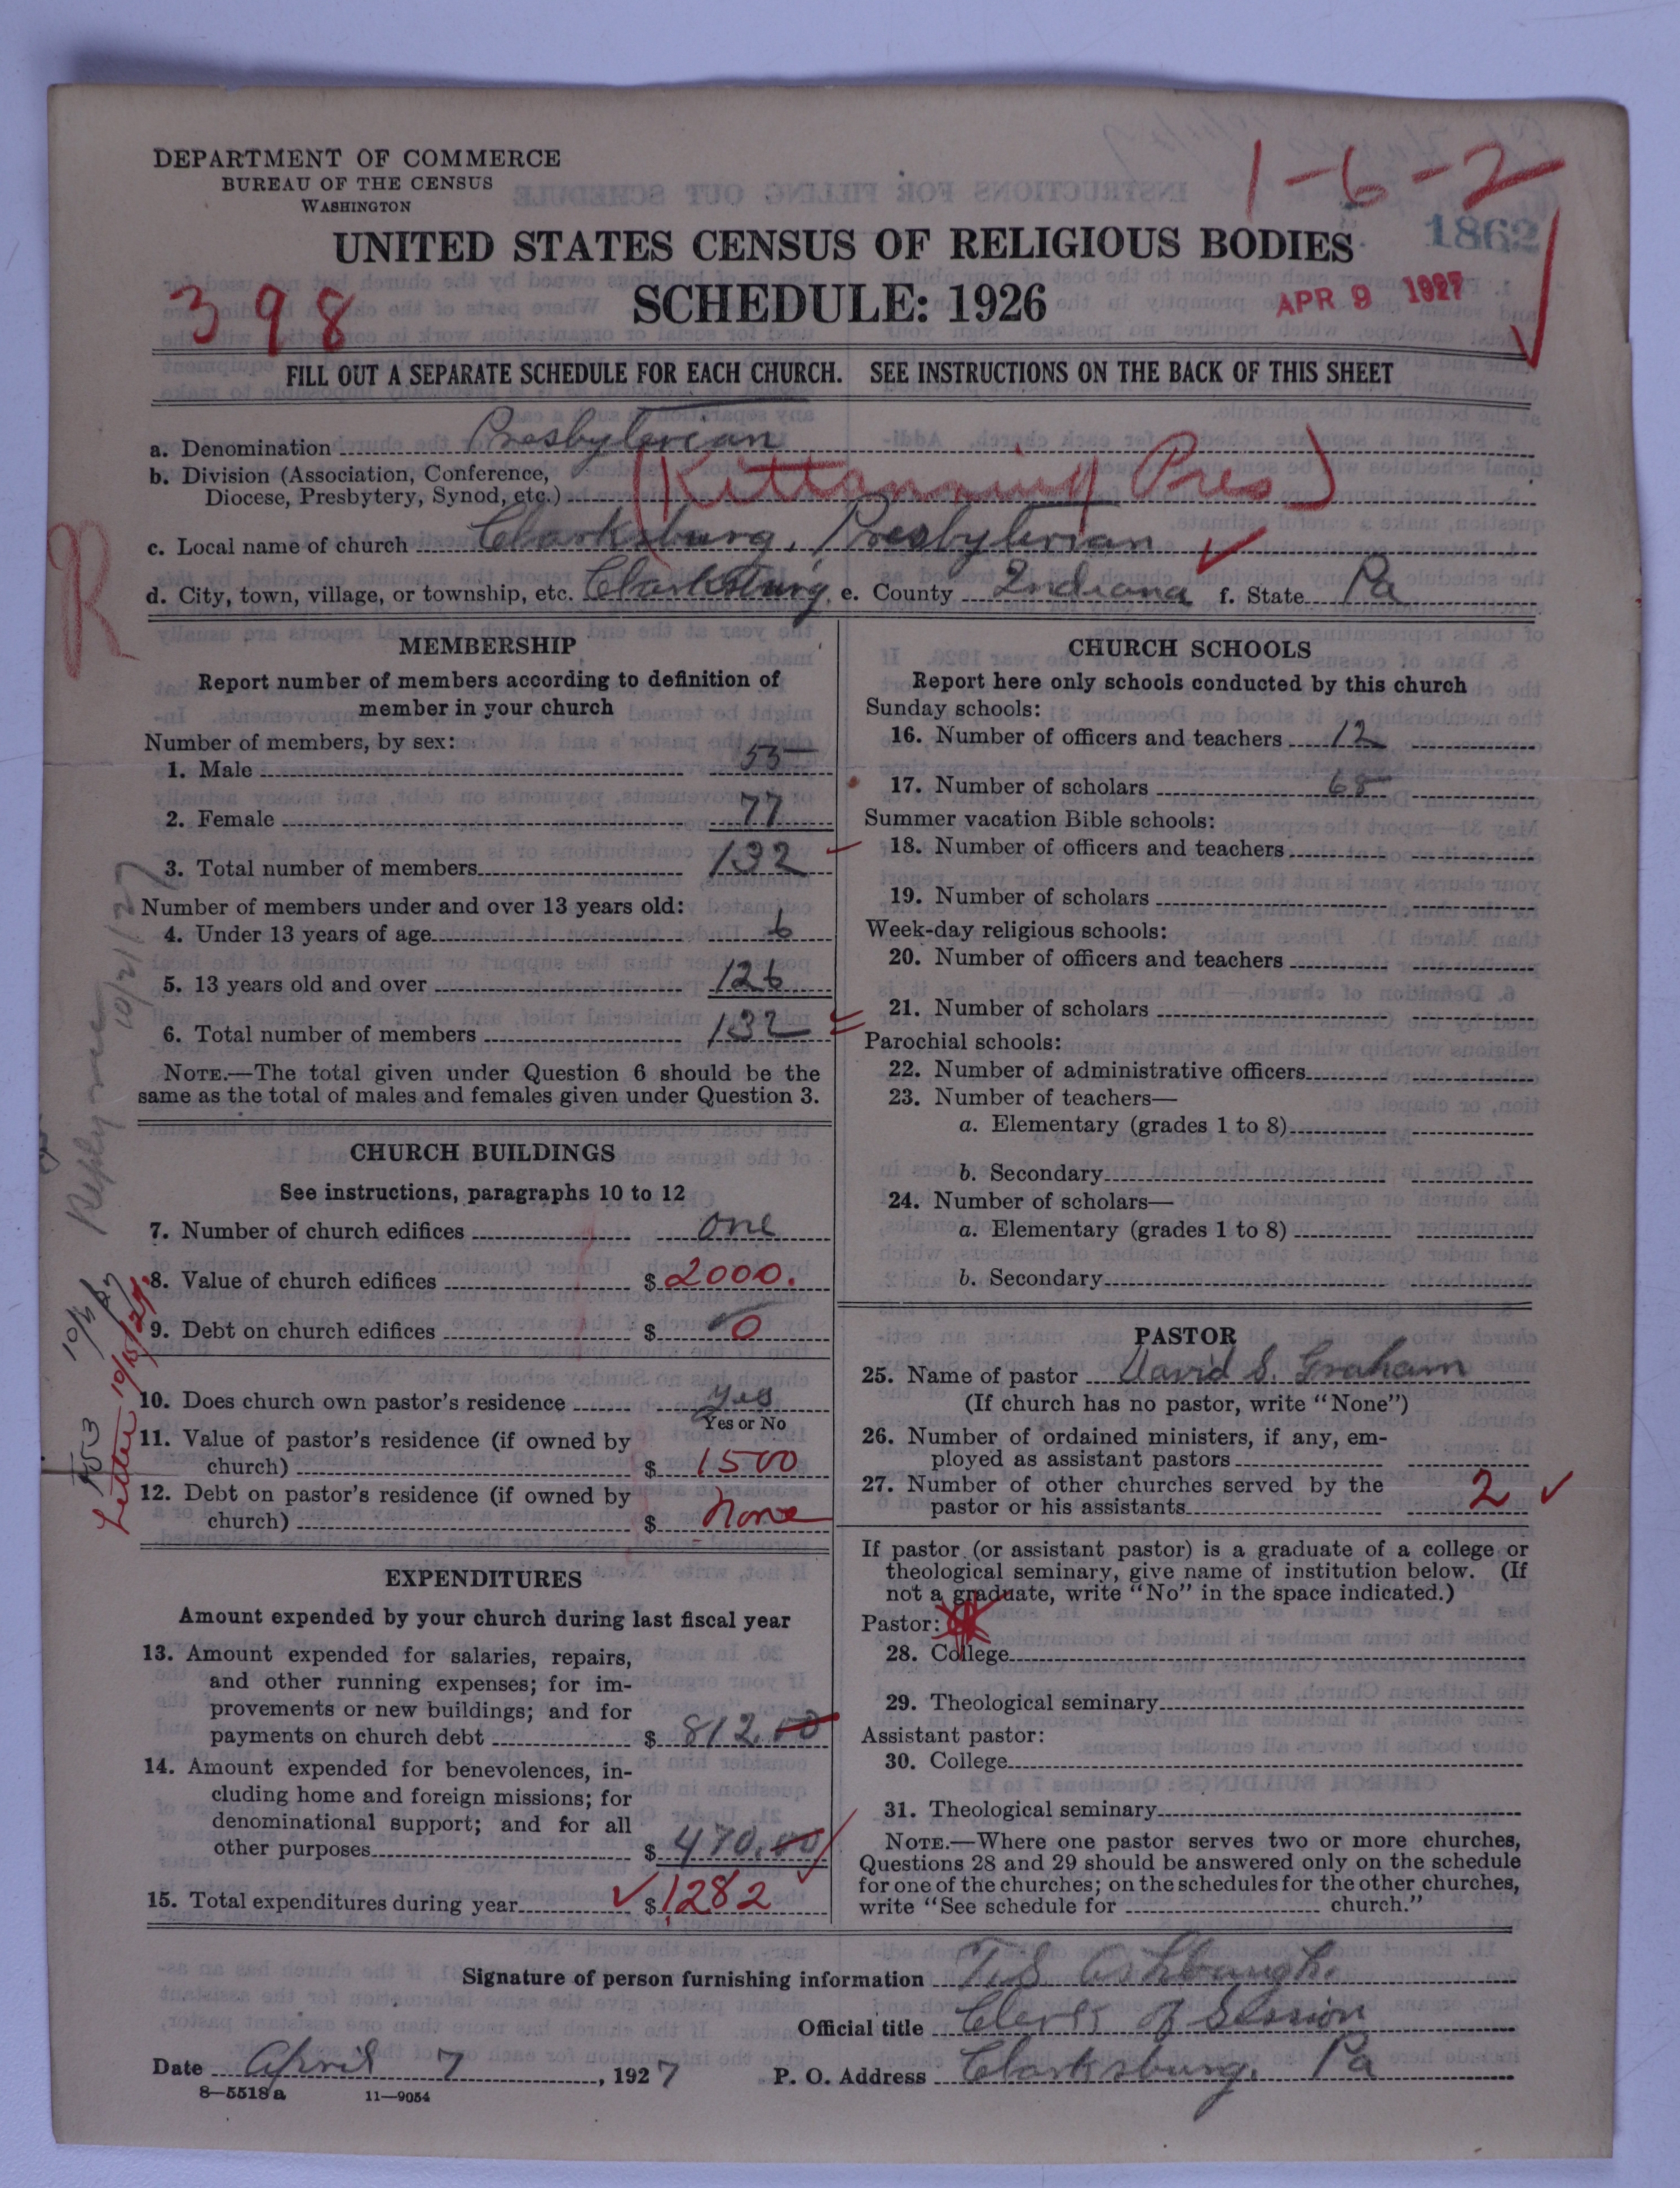 DEPARTMENT OF COMMERCE
BUREAU OF THE CENSUS
WASHINGTON
1-6-2
1862
UNITED STATES CENSUS OF RELIGIOUS BODIES
398
SCHEDULE: 1926
APR 9 1927
FILL OUT A SEPARATE SCHEDULE FOR EACH CHURCH. SEE INSTRUCTIONS ON THE BACK OF THIS SHEET
a. Denomination Presbyterian
b. Division (Association, Conference,
Diocese, Presbytery, Synod, etc.) (Kittanning Pres)
R
c. Local name of church Clarksburg, Presbyterian
d. City, town, village, or township, etc. Clarksburg, e. County Indiana f. State Pa
MEMBERSHIP
Report number of members according to definition of
member in your church
Number of members, by sex:
1. Male 55
2. Female 77
3. Total number of members 132
Number of members under and over 13 years old:
4. Under 13 years of age 6
5. 13 years old and over 126
6. Total number of members 132
NOTE.—The total given under Question 6 should be the
same as the total of males and females given under Question 3.
CHURCH BUILDINGS
See instructions, paragraphs 10 to 12
7. Number of church edifices one
8. Value of church edifices $ 2000.
9. Debt on church edifices $ 0
10. Does church own pastor's residence yes
Yes or No
11. Value of pastor's residence (if owned by
church) $ 1500
12. Debt on pastor's residence (if owned by
church) $ none
EXPENDITURES
Amount expended by your church during last fiscal year
13. Amount expended for salaries, repairs,
and other running expenses; for im-
provements or new buildings; and for
payments on church debt $ 812.00
14. Amount expended for benevolences, in-
cluding home and foreign missions; for
denominational support; and for all
other purposes $ 470.00
15. Total expenditures during year $ 1282
Letter 10/15/27
CHURCH SCHOOLS
Report here only schools conducted by this church
Sunday schools:
16. Number of officers and teachers 12
17. Number of scholars 68
Summer vacation Bible schools:
18. Number of officers and teachers
19. Number of scholars
Week-day religious schools:
20. Number of officers and teachers
21. Number of scholars
Parochial schools:
22. Number of administrative officers
23. Number of teachers—
a. Elementary (grades 1 to 8)
b. Secondary
24. Number of scholars—
a. Elementary (grades 1 to 8)
b. Secondary
PASTOR
25. Name of pastor David S. Graham
(If church has no pastor, write "None")
26. Number of ordained ministers, if any, em-
ployed as assistant pastors
27. Number of other churches served by the
pastor or his assistants 2
If pastor (or assistant pastor) is a graduate of a college or
theological seminary, give name of institution below. (If
not a graduate, write "No" in the space indicated.)
Pastor:
28. College
29. Theological seminary
Assistant pastor:
30. College
31. Theological seminary
NOTE.—Where one pastor serves two or more churches,
Questions 28 and 29 should be answered only on the schedule
for one of the churches; on the schedules for the other churches,
write "See schedule for church."
Signature of person furnishing information T. S. Ashbaugh.
Official title Clerk of Session
Date April 7, 1927 P. O. Address Clarksburg, Pa
8—5518a 11—9054